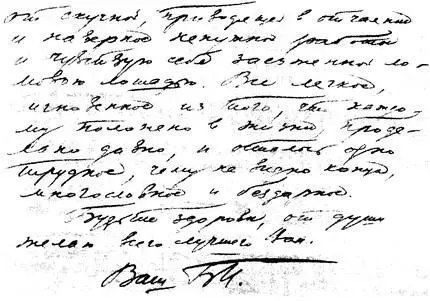 этой скучной, приводящей в отчаяние
и наверное ненужной работы
и чувствую себя заезженной ло-
мовою лошадью. Все легкое,
мгновенное из того, что каждо-
му положено в жизни, проде-
лано давно, и осталось одно
трудное, чему не видно конца,
многословное и бездарное.
Будьте здоровы, от души
желаю всего лучшего Вам.
Ваш БП.